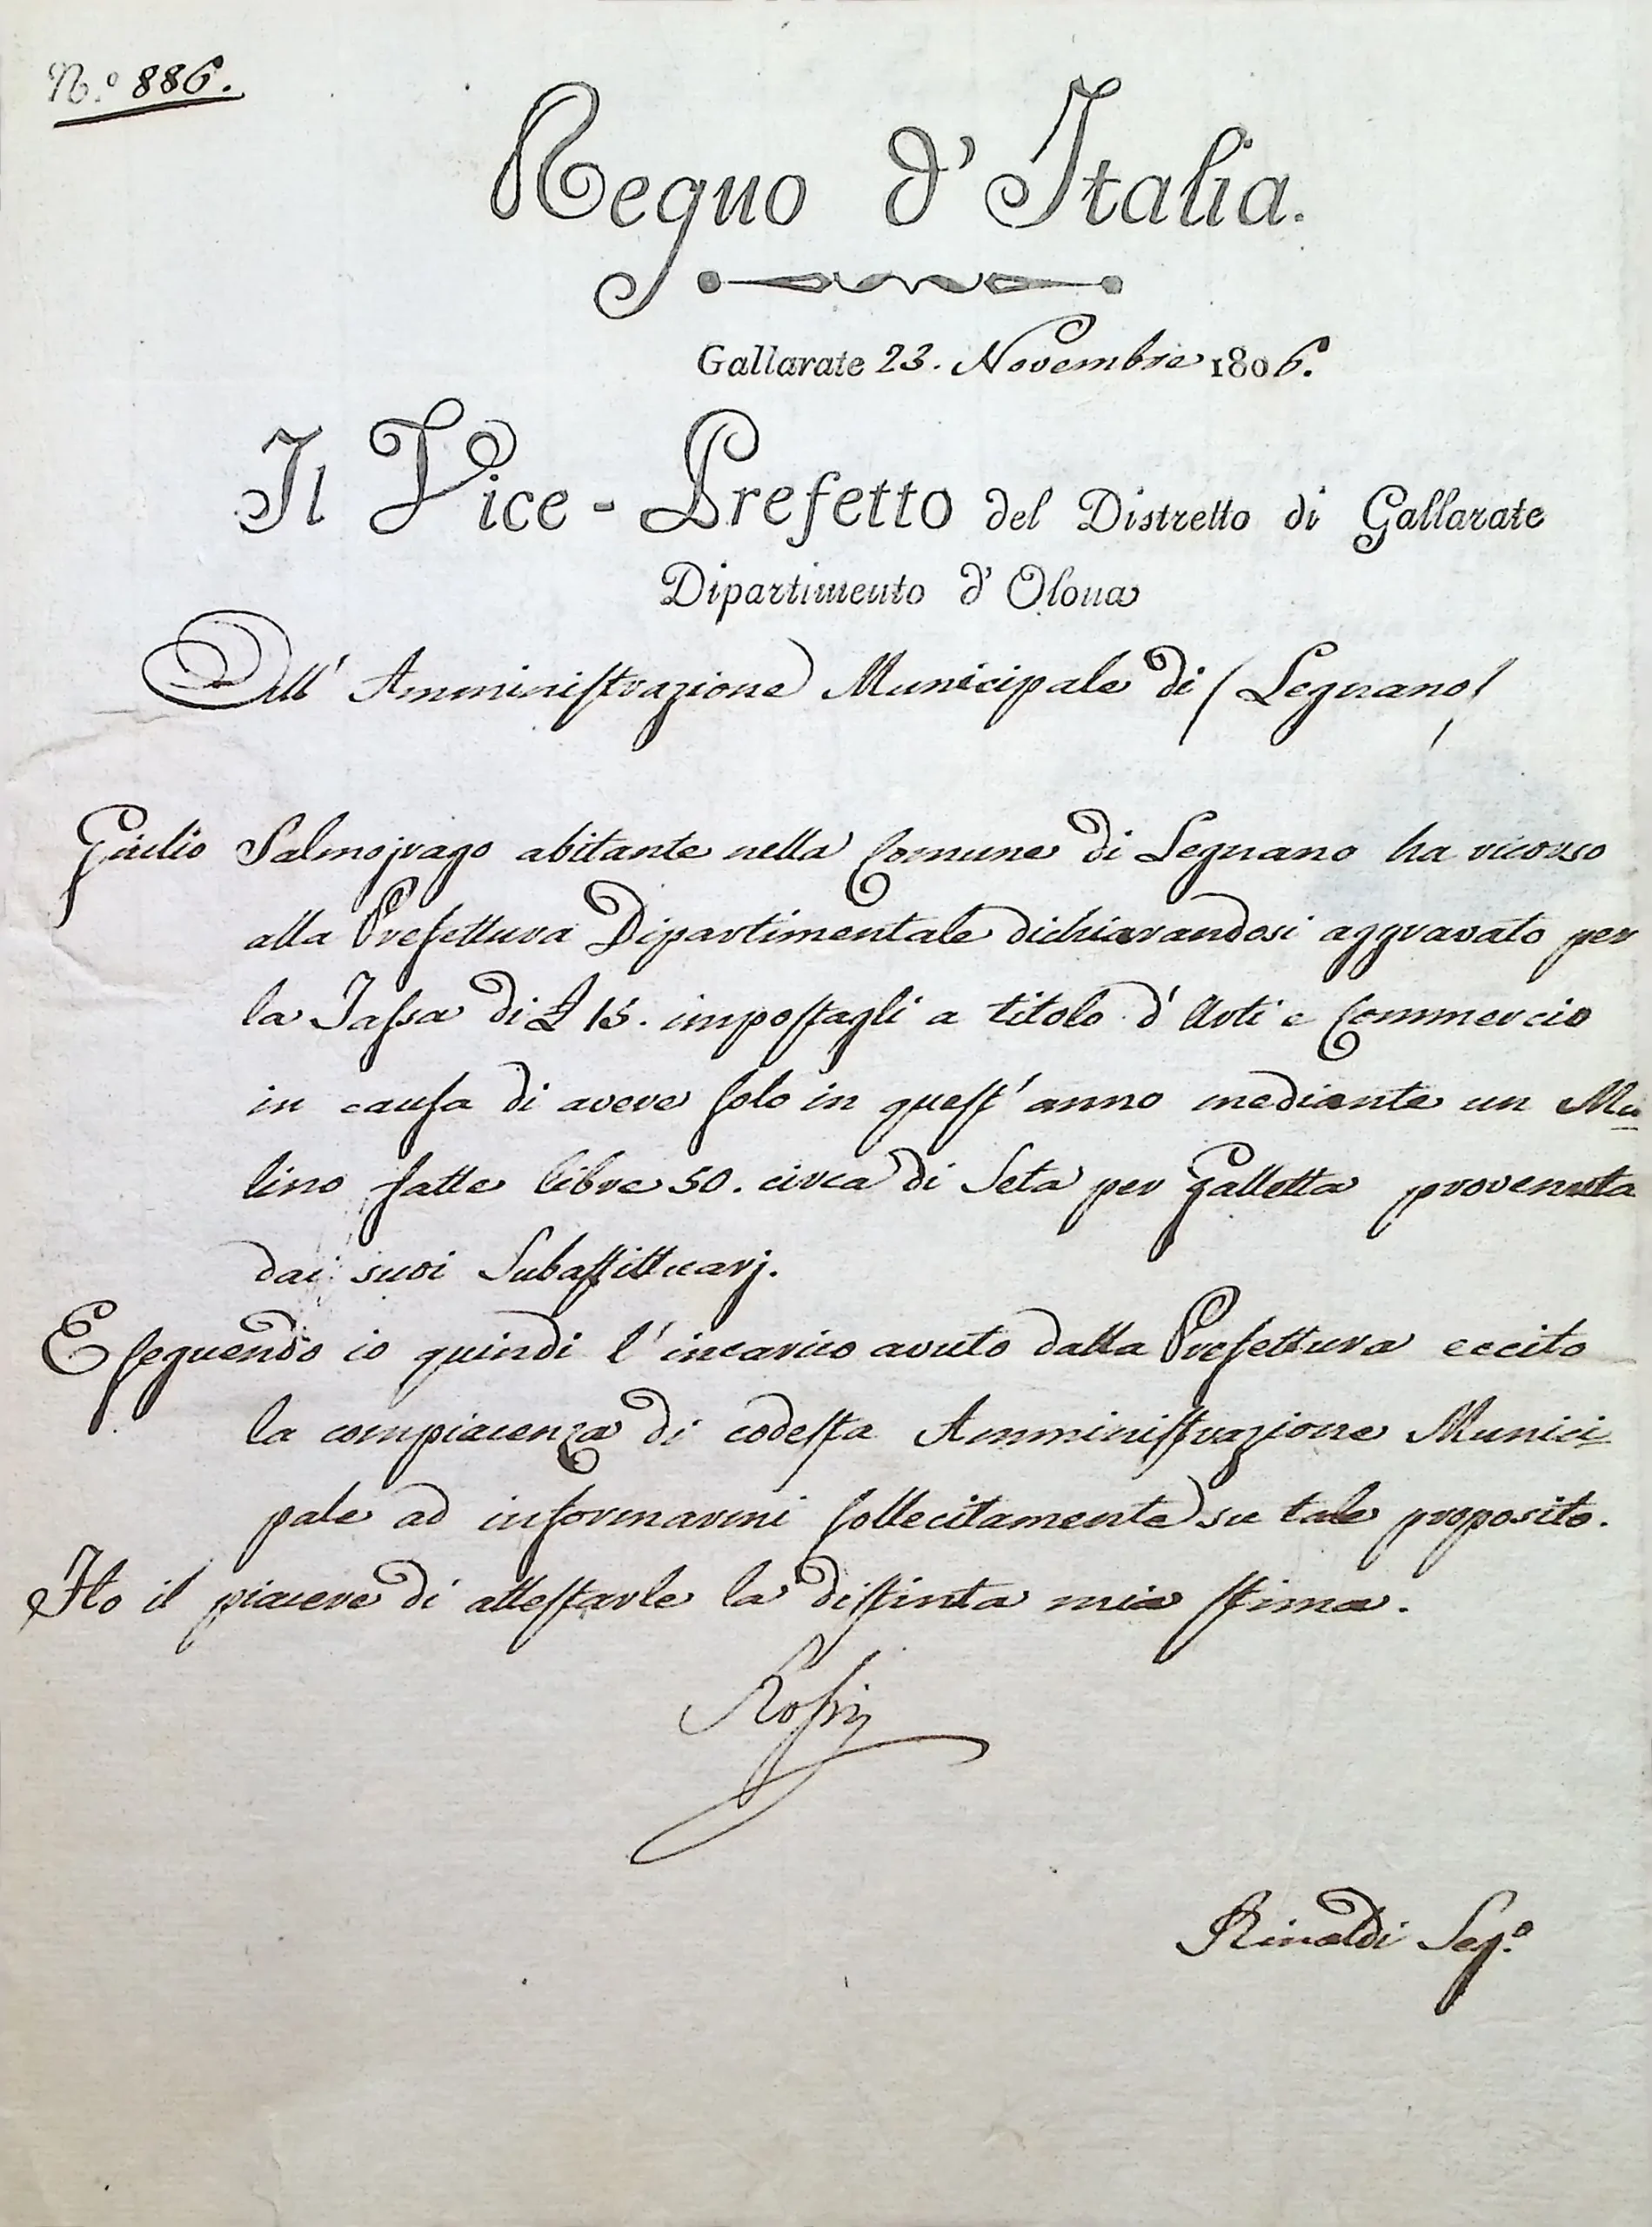 N.º 886.
Regno d'Italia.
Gallarate 23. Novembre 1806.
Il Vice-Prefetto del Distretto di Gallarate
Dipartimento d'Olona
All' Amministrazione Municipale di / Legnano /
Giulio Salmojrago abitante nella Comune di Legnano ha ricorso
alla Prefettura Dipartimentale dichiarandosi aggravato per
la Tassa di £ 15. impostagli a titolo d'Arti e Commercio
in causa di avere solo in quest'anno mediante un Mu
lino fatte libre 50. circa di Seta per Galletta provenuta
dai suoi Subaffittuarj.
Eseguendo io quindi l'incarico avuto dalla Prefettura eccito
la compiacenza di codesta Amministrazione Munici
pale ad informarmi sollecitamente su tale proposito.
Ho il piacere di attestarle la distinta mia stima.
Rossi
Rinaldi Seg.º